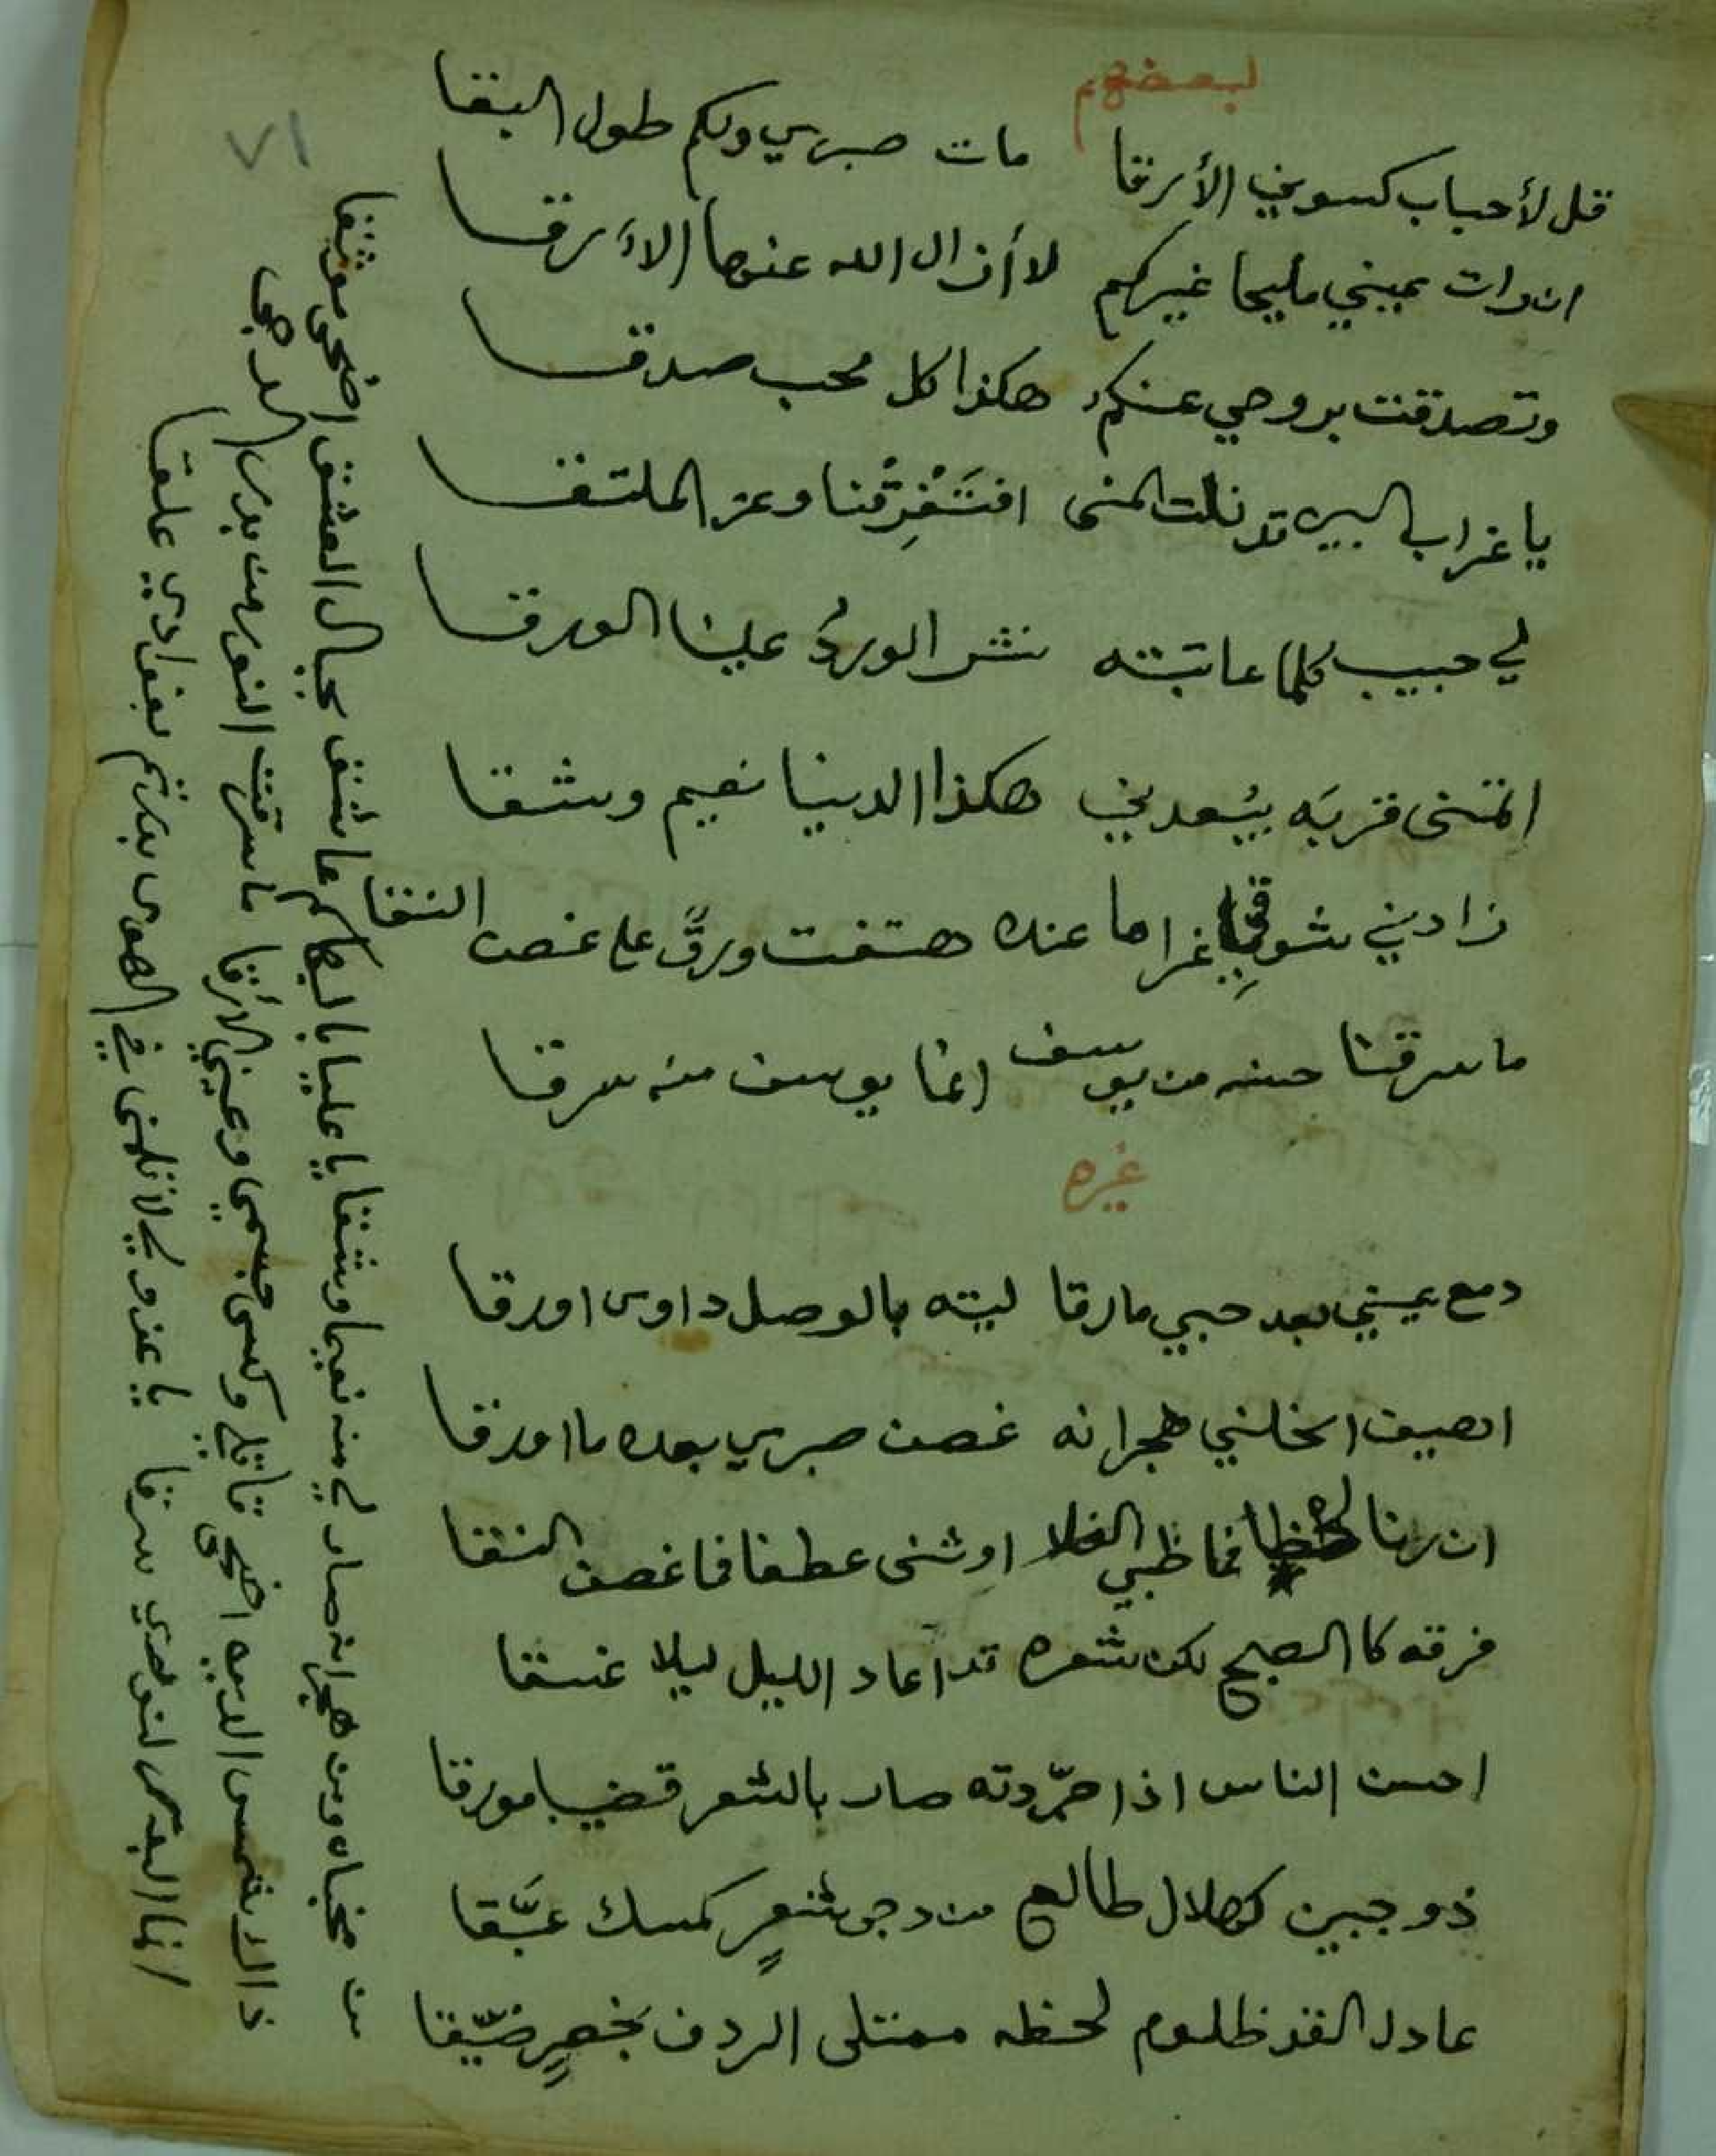 لبعضهم
٧١
قل لأحباب كسوني الأرقا مات صبري ولكم طول البقا
ان رات عيني مليحا غيركم لا أزال الله عنها الأرقا
وتصدقت بروحي عنكم هكذا كل محب صدقا
يا غراب البين قد نلت المنى افتَفْرِقْنا وعز الملتقا
لي حبيب كلما عاتبته نثر الوردُ علينا الورقا
اتمنى قربَه يُسعدني هكذا الدنيا نعيم وشقا
زادني شوقي غراما عنده هتفت ورقٌ على غصن النقا
ما سرقنا حسنه من يوسف انما يوسف منه سرقا
غيره
دمع عيني بعد حبي ما رقا ليته بالوصل داوى اورقا
اهيف انحلني هجرانه غصن صبري بعده ما اورقا
ان رنا لحظا فما ظبي الفلا او ثنى عطفا فما غصن النقا
فرقه كا الصبح لكن شعره قد اعاد الليل ليلا غسقا
احسن الناس اذا جرّدته صار بالشعر قضيبا مورقا
ذو جبين كهلال طالع من دجى شعرٍ كمسك عبَّقا
عادل القد ظلوم لحظه ممتلى الردف بخصرٍ ضيّقا
من هجرانه صار لي منه نعيما وشقا يا عليا بالبها كم عاشق بجبال العشق اضحى موثقا
ذا الرشمسى الديه اضحى قاتلي وكسى جسمي وعيني الأرقا ما سرقت النور من بدر الدجى
انما البدر لنو سرقا يا عذولي لا تلمني في الهوى بفوادي علقا